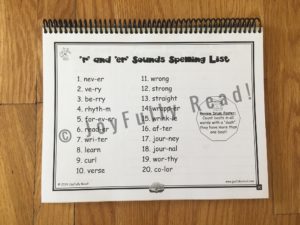 'r' and 'er' Sounds Spelling List
1. nev-er
2. ve-ry
3. be-rry
4. rhyth-m
5. for-ev-er
6. read-er
7. wri-ter
8. learn
9. curl
10. verse
11. wrong
12. strong
13. straight
14. wrapp-er
15. wrink-le
16. af-ter
17. jour-ney
18. jour-nal
19. wor-thy
20. co-lar
Review Drum Roster:
Count beats in all
words with a "dash"
they have more than
one beat!
© JoyFul-ly Read!